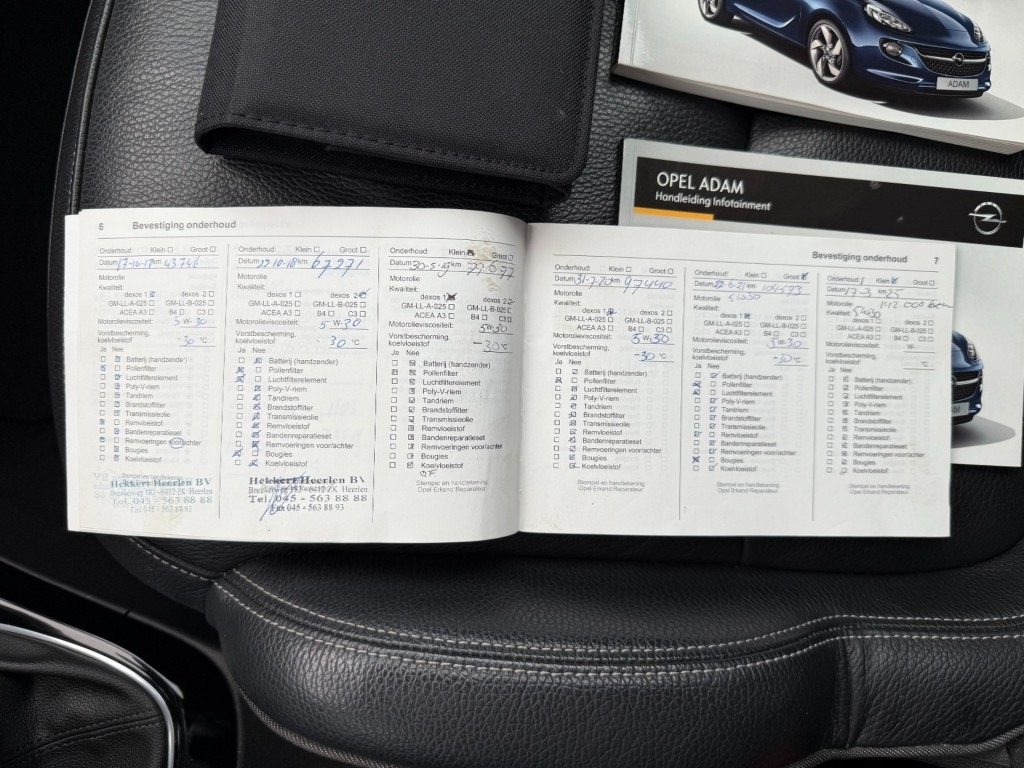 ADAM
OPEL ADAM
Handleiding Infotainment
6 Bevestiging onderhoud
Onderhoud: Klein Groot
Datum 17-10-17 km 43746
Motorolie
Kwaliteit:
dexos 1 dexos 2
GM-LL-A-025 GM-LL-B-025
ACEA A3 B4 C3
Motorolieviscositeit: 5 W-30
Vorstbescherming,
koelvloeistof -30 °C
Ja Nee
Batterij (handzender)
Pollenfilter
Luchtfilterelement
Poly-V-riem
Tandriem
Brandstoffilter
Transmissieolie
Remvloeistof
Bandenreparatieset
Remvoeringen voor/achter
Bougies
Koelvloeistof
Hekkert Heerlen BV
Tel. 045 - 563 88 88
Fax 045 - 563 88 93
Onderhoud: Klein Groot
Datum 22-10-18 km 67271
Motorolie
Kwaliteit:
dexos 1 dexos 2
GM-LL-A-025 GM-LL-B-025
ACEA A3 B4 C3
Motorolieviscositeit: 5 W-30
Vorstbescherming,
koelvloeistof 30 °C
Ja Nee
Batterij (handzender)
Pollenfilter
Luchtfilterelement
Poly-V-riem
Tandriem
Brandstoffilter
Transmissieolie
Remvloeistof
Bandenreparatieset
Remvoeringen voor/achter
Bougies
Koelvloeistof
Hekkert Heerlen BV
Tel. 045 - 563 88 88
Fax 045 - 563 88 93
Onderhoud: Klein Groot
Datum 30-5- km
Motorolie
Kwaliteit:
dexos 1 dexos 2
GM-LL-A-025 GM-LL-B-025
ACEA A3 B4 C3
Motorolieviscositeit: 5W-30
Vorstbescherming,
koelvloeistof -30 °C
Ja Nee
Batterij (handzender)
Pollenfilter
Luchtfilterelement
Poly-V-riem
Tandriem
Brandstoffilter
Transmissieolie
Remvloeistof
Bandenreparatieset
Remvoeringen voor/achter
Bougies
Koelvloeistof
Stempel en handtekening
Opel Erkend Reparateur
Bevestiging onderhoud 7
Onderhoud: Klein Groot
Datum 31-7-20 km 97440
Motorolie
Kwaliteit:
dexos 1 dexos 2
GM-LL-A-025 GM-LL-B-025
ACEA A3 B4 C3
Motorolieviscositeit: 5 W-30
Vorstbescherming,
koelvloeistof -30 °C
Ja Nee
Batterij (handzender)
Pollenfilter
Luchtfilterelement
Poly-V-riem
Tandriem
Brandstoffilter
Transmissieolie
Remvloeistof
Bandenreparatieset
Remvoeringen voor/achter
Bougies
Koelvloeistof
Stempel en handtekening
Opel Erkend Reparateur
Onderhoud: Klein Groot
Datum 22-6-21 km 104573
Motorolie 5W30
Kwaliteit:
dexos 1 dexos 2
GM-LL-A-025 GM-LL-B-025
ACEA A3 B4 C3
Motorolieviscositeit: 5W-30
Vorstbescherming,
koelvloeistof -30 °C
Ja Nee
Batterij (handzender)
Pollenfilter
Luchtfilterelement
Poly-V-riem
Tandriem
Brandstoffilter
Transmissieolie
Remvloeistof
Bandenreparatieset
Remvoeringen voor/achter
Bougies
Koelvloeistof
Stempel en handtekening
Opel Erkend Reparateur
Onderhoud: Klein Groot
Datum km
Motorolie
Kwaliteit: 5W30
dexos 1 dexos 2
GM-LL-A-025 GM-LL-B-025
ACEA A3 B4 C3
Motorolieviscositeit: W-
Vorstbescherming,
koelvloeistof °C
Ja Nee
Batterij (handzender)
Pollenfilter
Luchtfilterelement
Poly-V-riem
Tandriem
Brandstoffilter
Transmissieolie
Remvloeistof
Bandenreparatieset
Remvoeringen voor/achter
Bougies
Koelvloeistof
Stempel en handtekening
Opel Erkend Reparateur